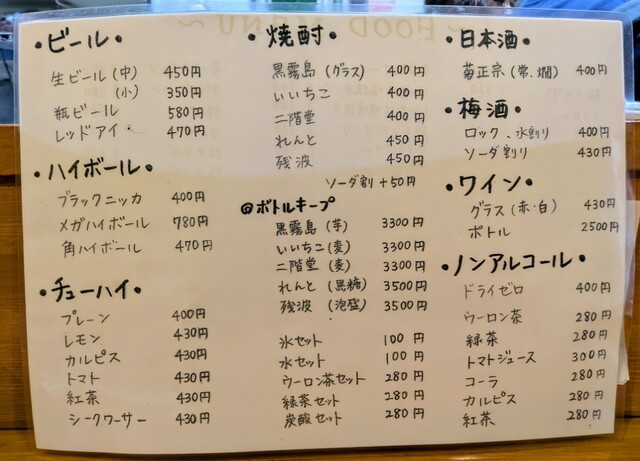 ～FOOD MENU～
・ビール・
生ビール(中) 450円
(小) 350円
瓶ビール 580円
レッドアイ・ 470円
・ハイボール・
ブラックニッカ 400円
メガハイボール 780円
角ハイボール 470円
・チューハイ・
プレーン 400円
レモン 430円
カルピス 430円
トマト 430円
紅茶 430円
シークワーサー 430円
・焼酎・
黒霧島(グラス) 400円
いいちこ 400円
二階堂 400円
れんと 450円
残波 450円
ソーダ割 +50円
@ボトルキープ
黒霧島(芋) 3300円
いいちこ(麦) 3300円
二階堂(麦) 3300円
れんと(黒糖) 3500円
残波(泡盛) 3500円
氷セット 100円
水セット 100円
ウーロン茶セット 280円
緑茶セット 280円
炭酸セット 280円
・日本酒・
菊正宗(常.燗) 400円
・梅酒・
ロック、水割り 400円
ソーダ割り 430円
・ワイン・
グラス(赤・白) 430円
ボトル 2500円
・ノンアルコール・
ドライゼロ 400円
ウーロン茶 280円
緑茶 280円
トマトジュース 300円
コーラ 280円
カルピス 280円
紅茶 280円